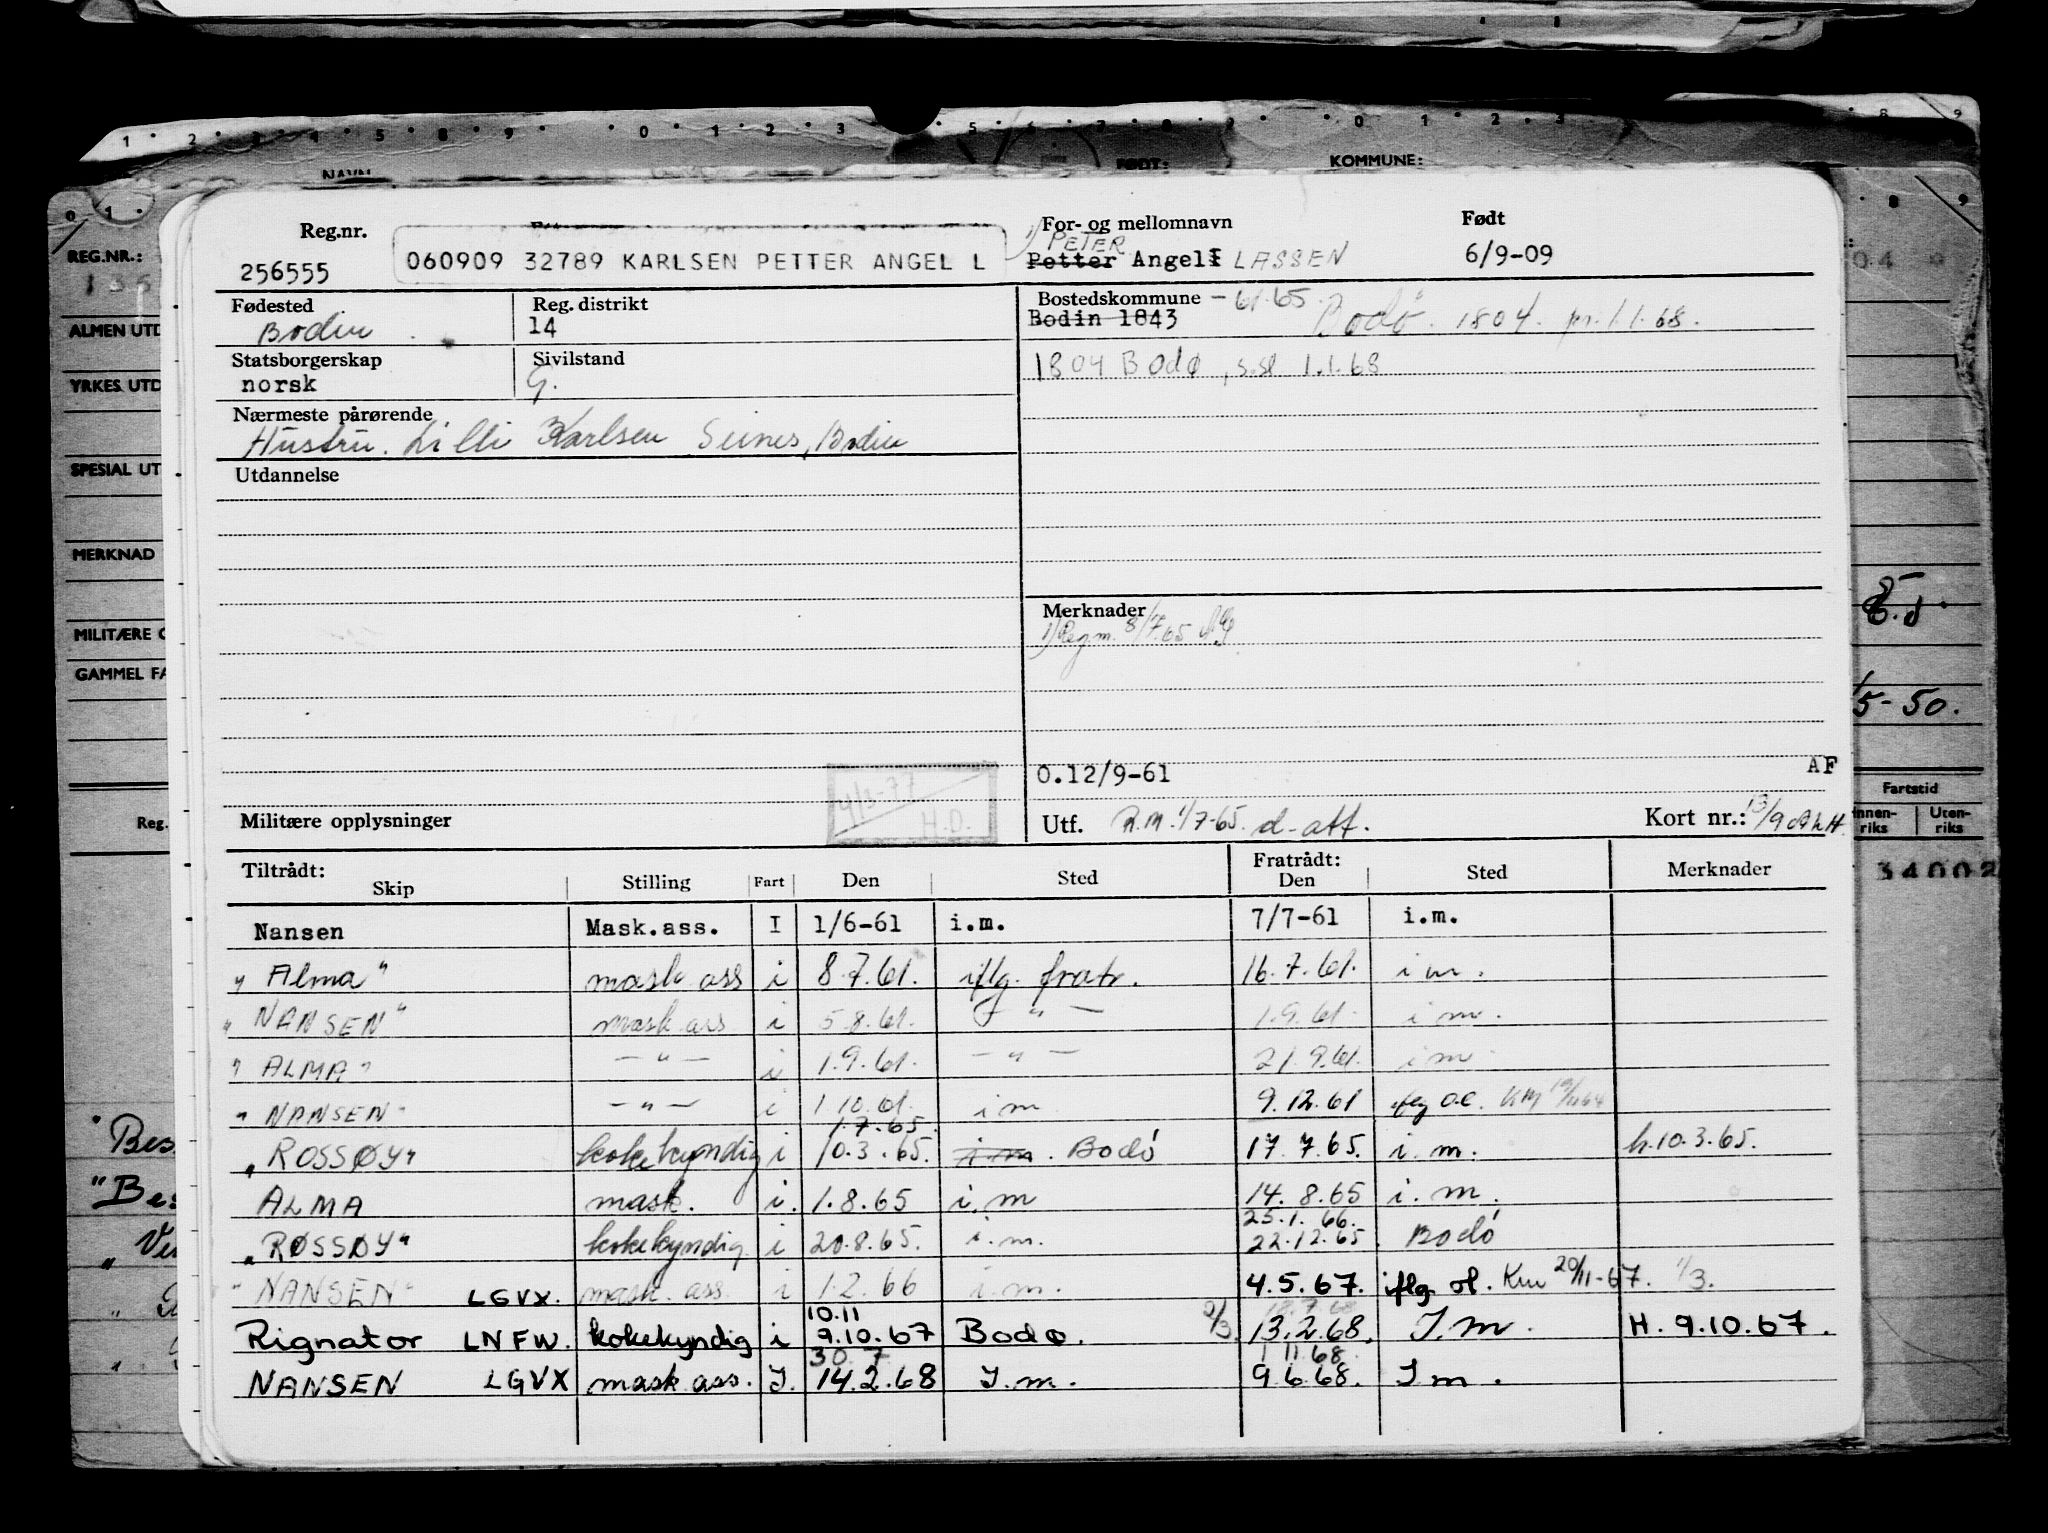 KOMMUNE:
Reg.nr.
For- og mellomnavn
Født
1) PETER
256555
060909 32789 KARLSEN PETTER ANGEL L
Petter Angell LASSEN
6/9-09
Fødested
Reg. distrikt
Bostedskommune - 61.65.
Bodin
14
Bodin 1843
Bodø 1804. pr. 1.1.68.
Statsborgerskap
Sivilstand
norsk
G.
1804 Bodø, s.sl 1.1.68
Nærmeste pårørende
Hustru. Lilli Karlsen Seines, Bodin
Utdannelse
Merknader
1) Reg.m. 8/7.65
0.12/9-61
AF
4/3-77
H.D.
Militære opplysninger
Utf. R.M. 1/7-65. d-att.
Kort nr.:
Tiltrådt:
Skip
Stilling
Fart
Den
Sted
Fratrådt:
Den
Sted
Merknader
Nansen Mask.ass. I 1/6-61 i.m. 7/7-61 i.m.
"Alma" mask ass i 8.7.61. iflg. fratr. 16.7.61. i m.
"NANSEN" mask.ass i 5.8.61. - " - 1.9.61. i m.
"ALMA" - " - i 1.9.61. - " - 21.9.61. i m
"NANSEN" - " - i 1.10.61. i m 9.12.61 iflg O.C.
1.7.65.
"ROSSØY" kokekyndig i 10.3.65. i.m. Bodø 17.7.65. i.m. h.10.3.65.
ALMA mask. i. 1.8.65 i.m 14.8.65 i.m.
25.1.66.
"RØSSØY" kokekyndig i 20.8.65. i.m. 22.12.65. Bodø
"NANSEN" LGVX. mask. ass. i 1.2.66 i.m. 4.5.67. iflg. ol. Km 20/11-67. 1/3.
10.11 18.7.68
Rignator LNFW. kokekyndig i 9.10.67 Bodø. 2/3. 13.2.68. I.m. H. 9.10.67.
30.7 1.11.68
NANSEN LGVX mask.ass. I. 14.2.68 I.m. 9.6.68. I m.
REG.NR.:
ALMEN UTD
YRKES UTD
SPESIAL UT
MERKNAD
MILITÆRE
GAMMEL FA
Reg.
5-50.
Fartstid
Innenriks
Utenriks
34002
"Bes
"Bes